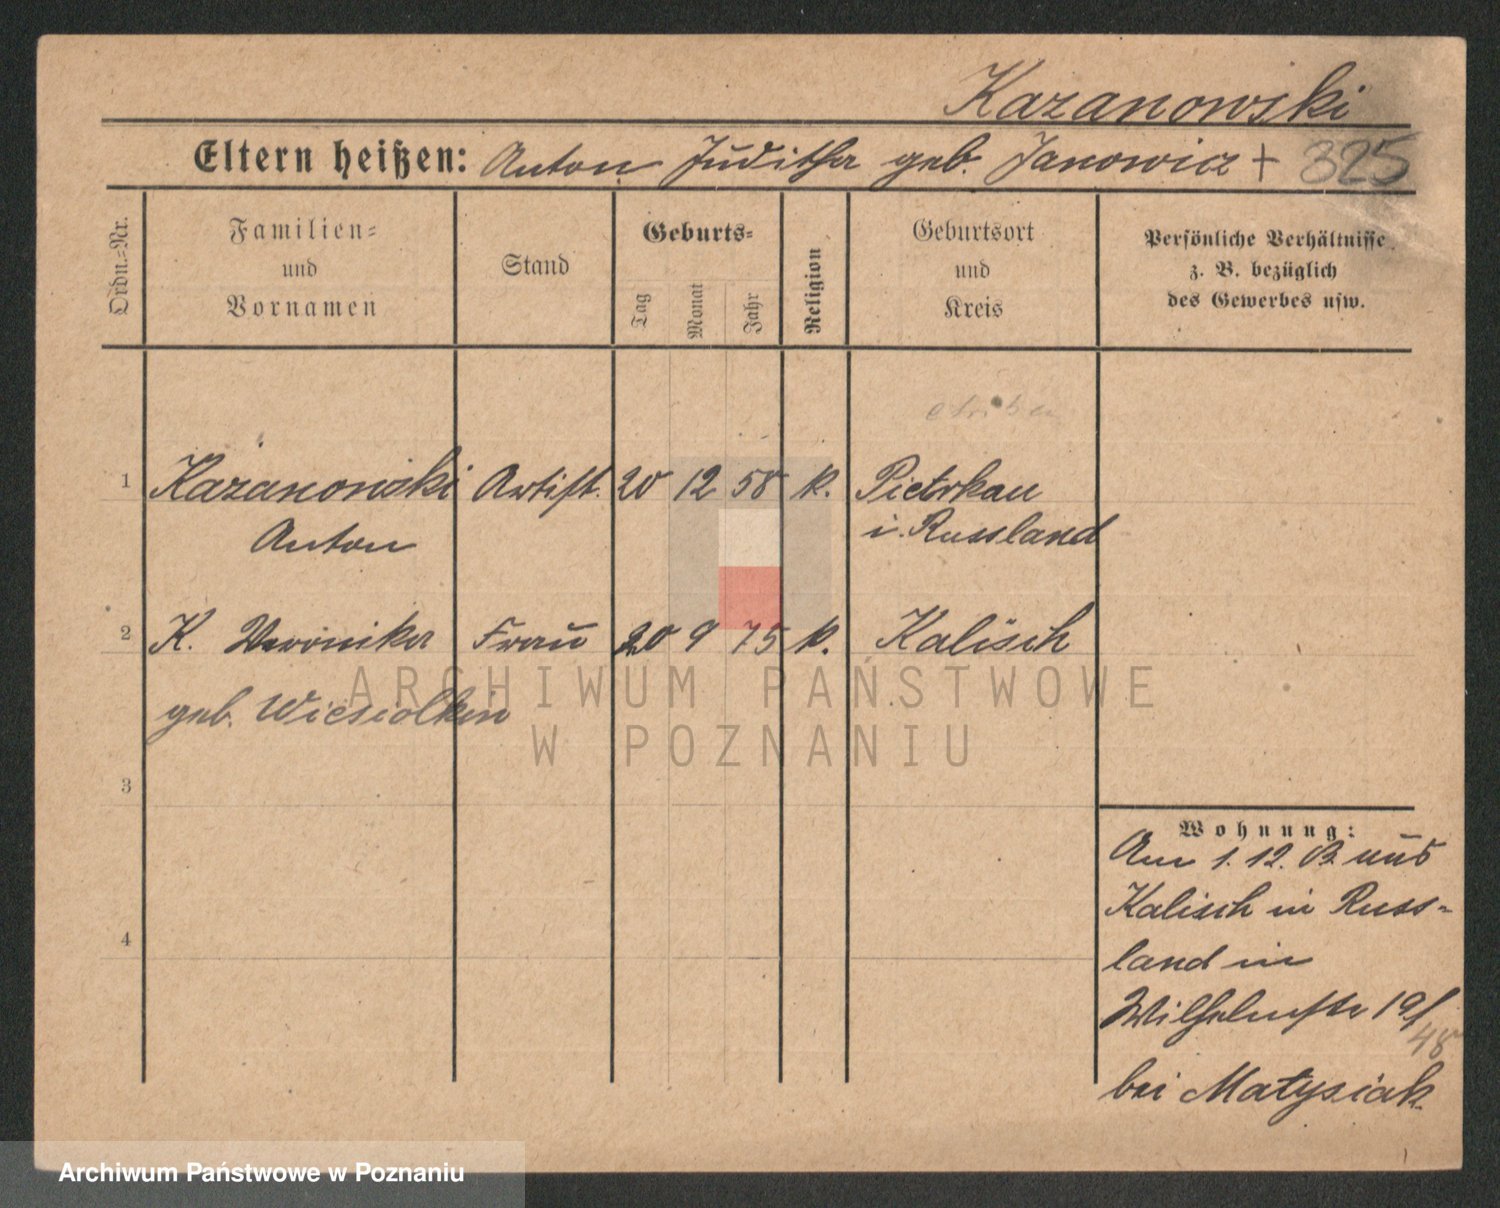 Kazanowski
Eltern heißen: Anton Juditha geb. Janowicz + 325
Ordn.-Nr.
Familien-
und
Vornamen
Stand
Geburts-
Tag
Monat
Jahr
Religion
Geburtsort
und
Kreis
Persönliche Verhältnisse
z. B. bezüglich
des Gewerbes usw.
1 Kazanowski Artist. 20 12 58 k. Pietrkau
Anton i. Russland
2 K. Veronika Frau 20 9 75 k. Kalisch
geb. Wiesiolkin
3
4
Wohnung:
Am 1. 12. 03 aus
Kalisch in Russ-
land in
Wilhelmstr 19/
48
bei Matysiak
ARCHIWUM PAŃSTWOWE
W POZNANIU
Archiwum Państwowe w Poznaniu